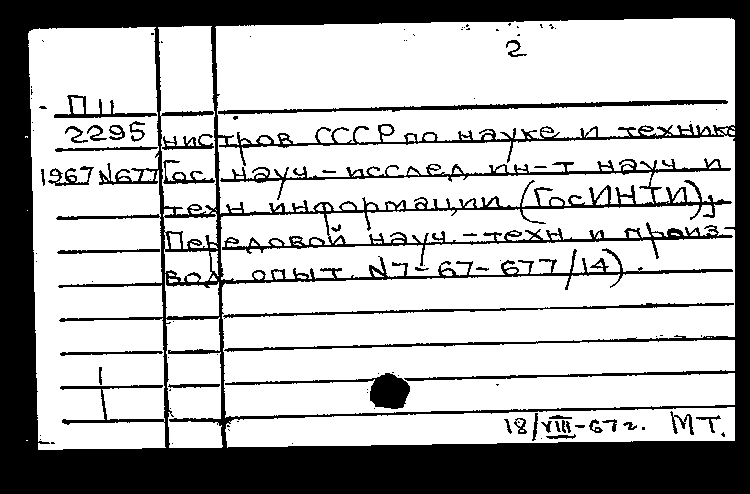 2
П 11
2295 нистров СССР по науке и технике
1967 N677 Гос. науч.-исслед. ин-т науч. и
техн. информации (ГосИНТИ);
Передовой науч.-техн. и произ-
вод. опыт. N7-67-677/14).
18/VIII-67г. МТ.